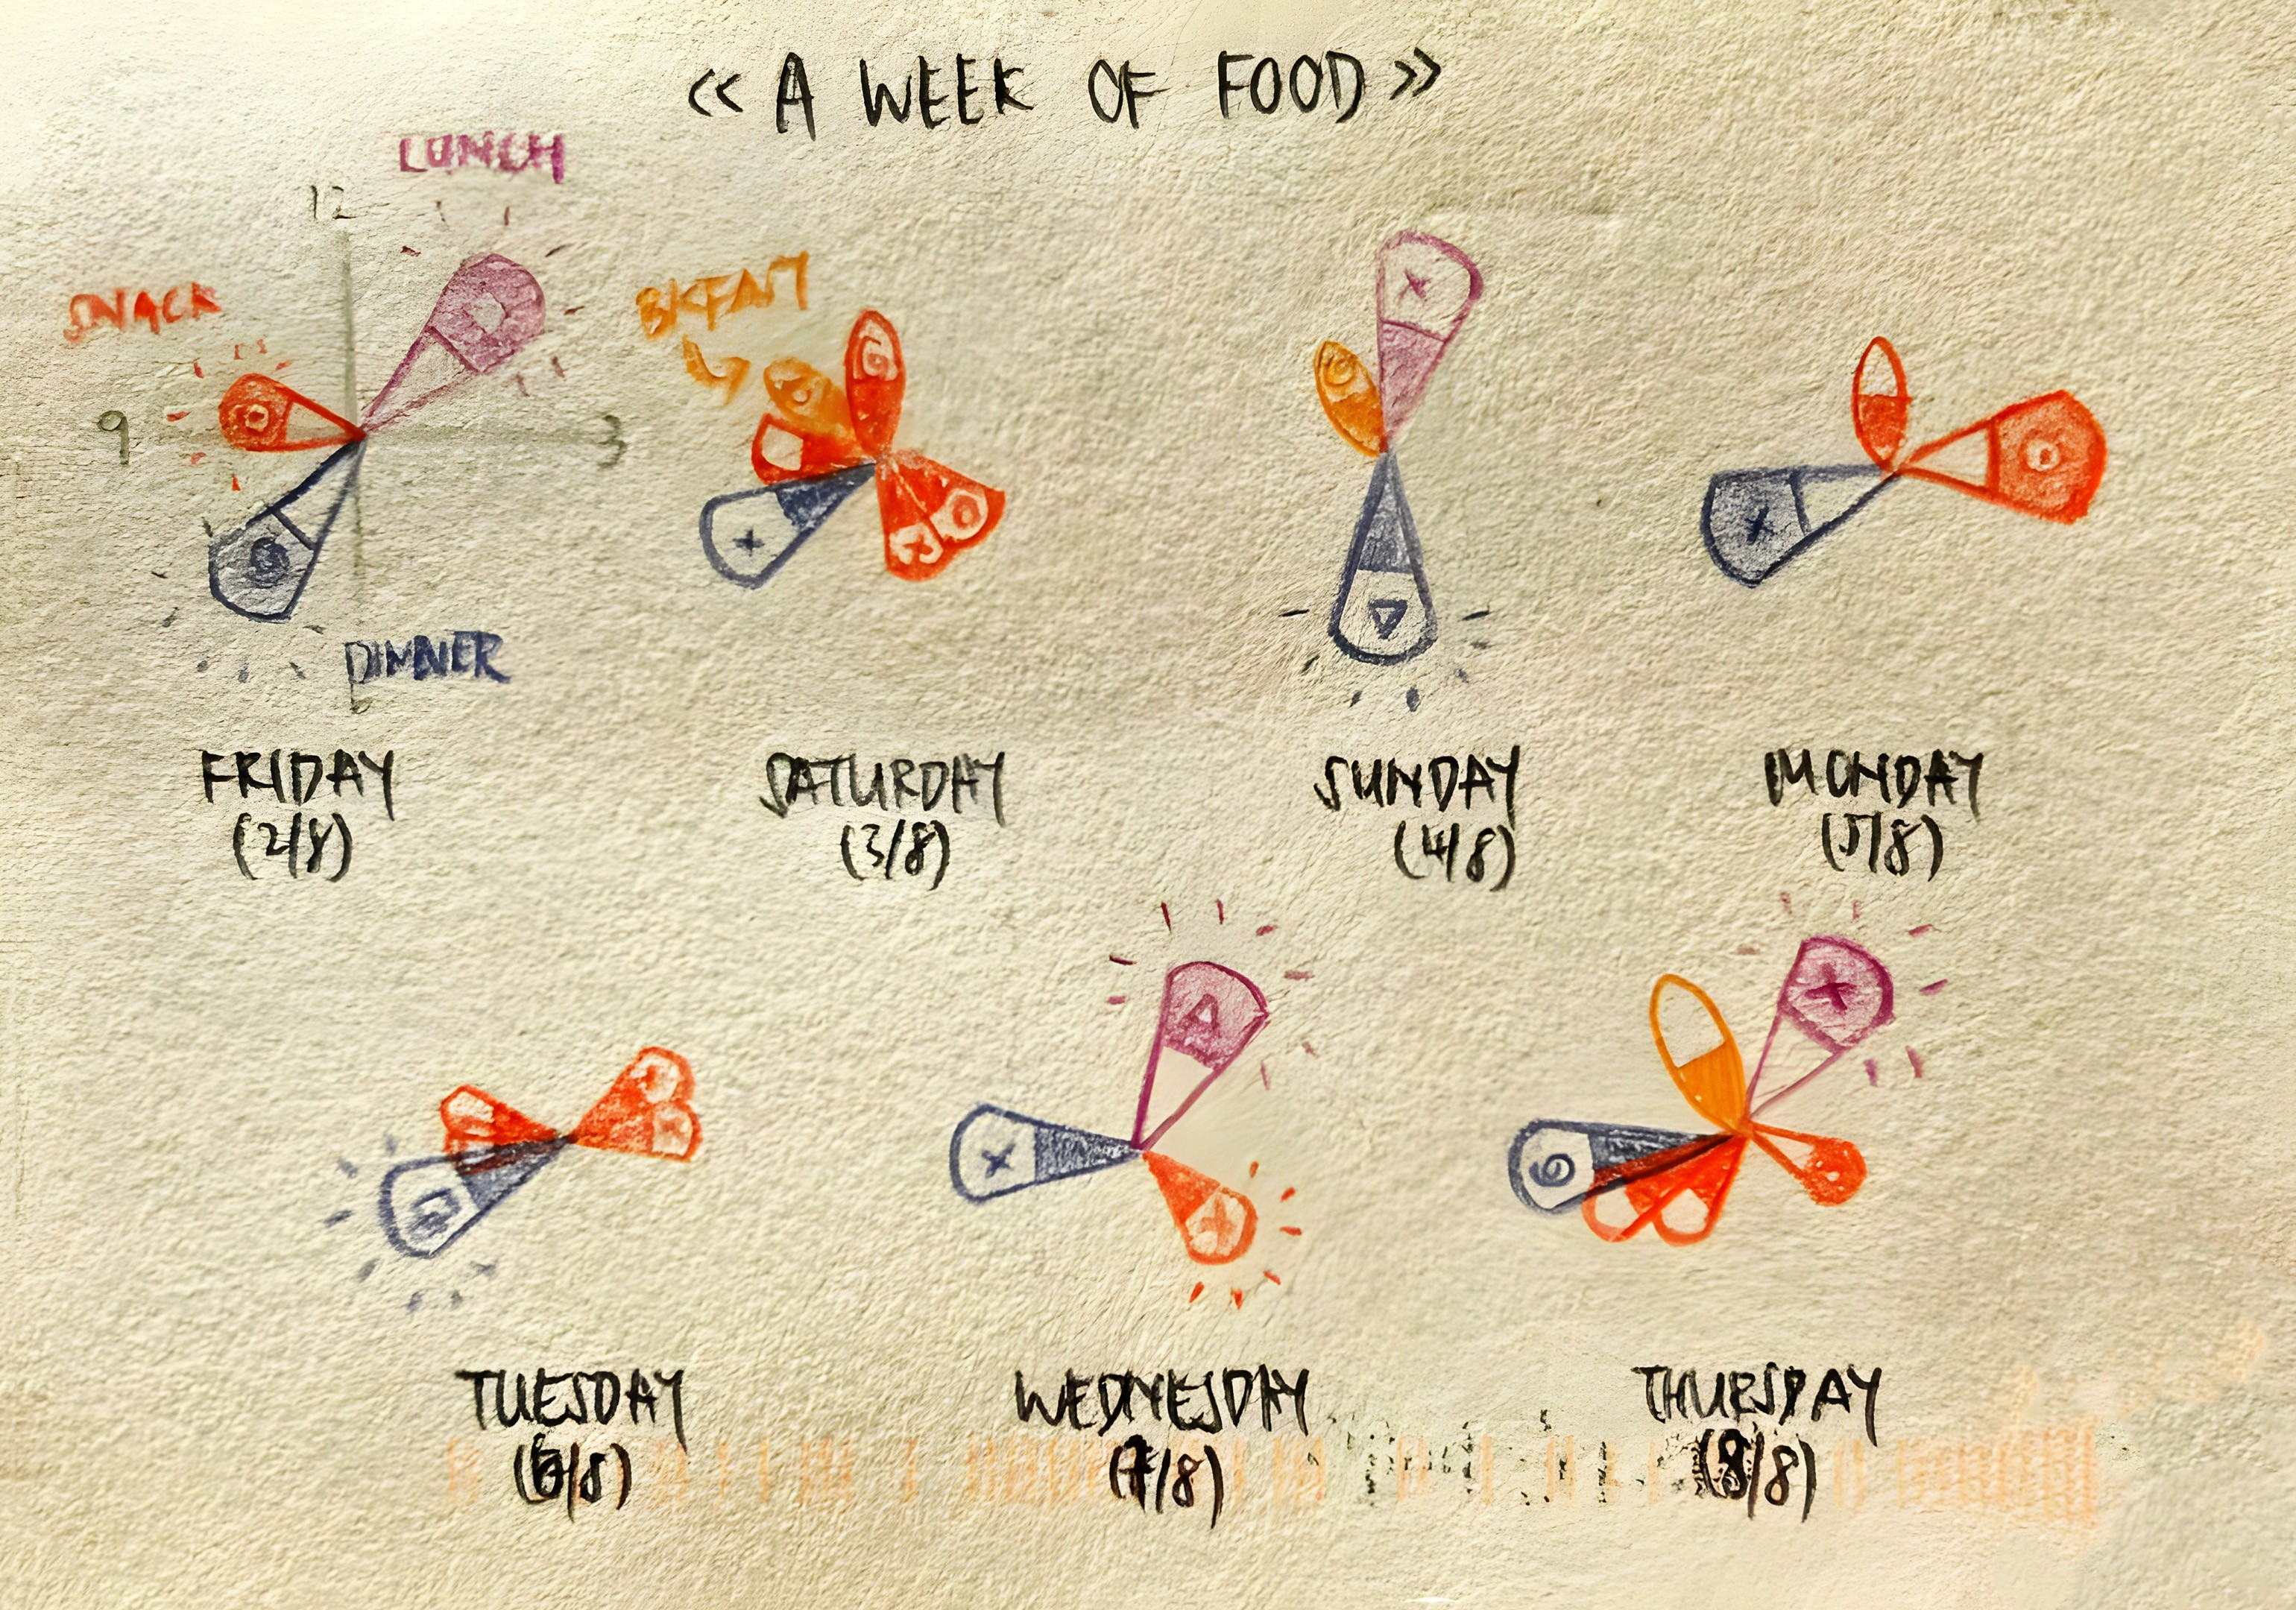 << A WEEK OF FOOD >>
LUNCH
12
SNACK
9
3
DINNER
6
BKFAST
FRIDAY
(2/8)
SATURDAY
(3/8)
SUNDAY
(4/8)
MONDAY
(5/8)
TUESDAY
(6/8)
WEDNESDAY
(7/8)
THURSDAY
(8/8)